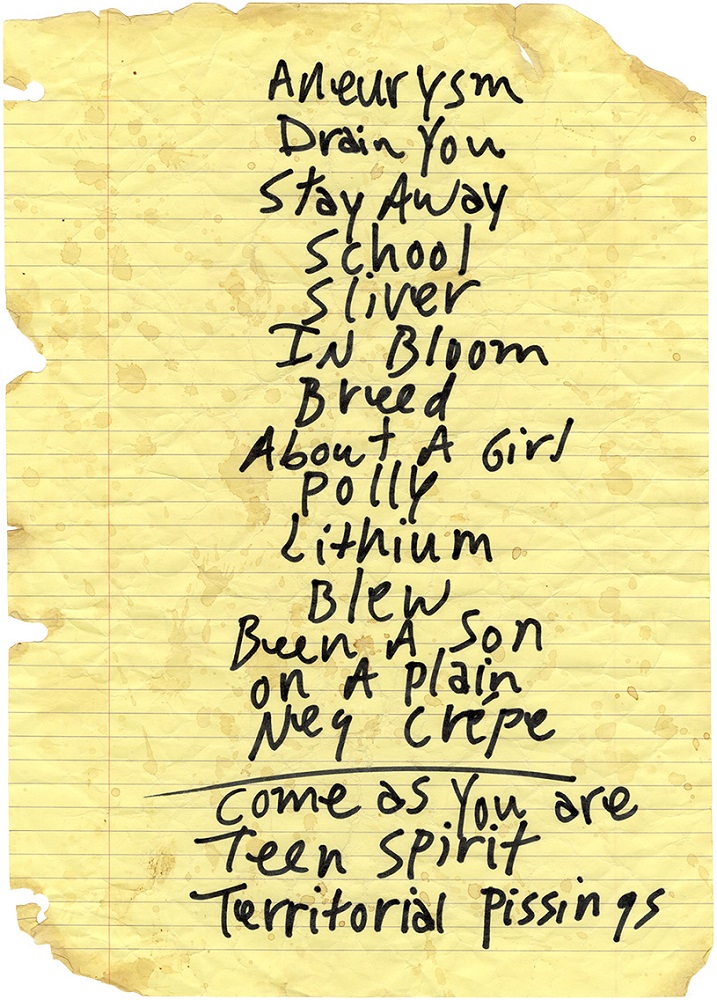 Aneurysm
Drain You
Stay Away
School
Sliver
IN Bloom
Breed
About A Girl
Polly
Lithium
Blew
Been A Son
on A plain
Neg Crépe
come as You are
Teen Spirit
Territorial Pissings